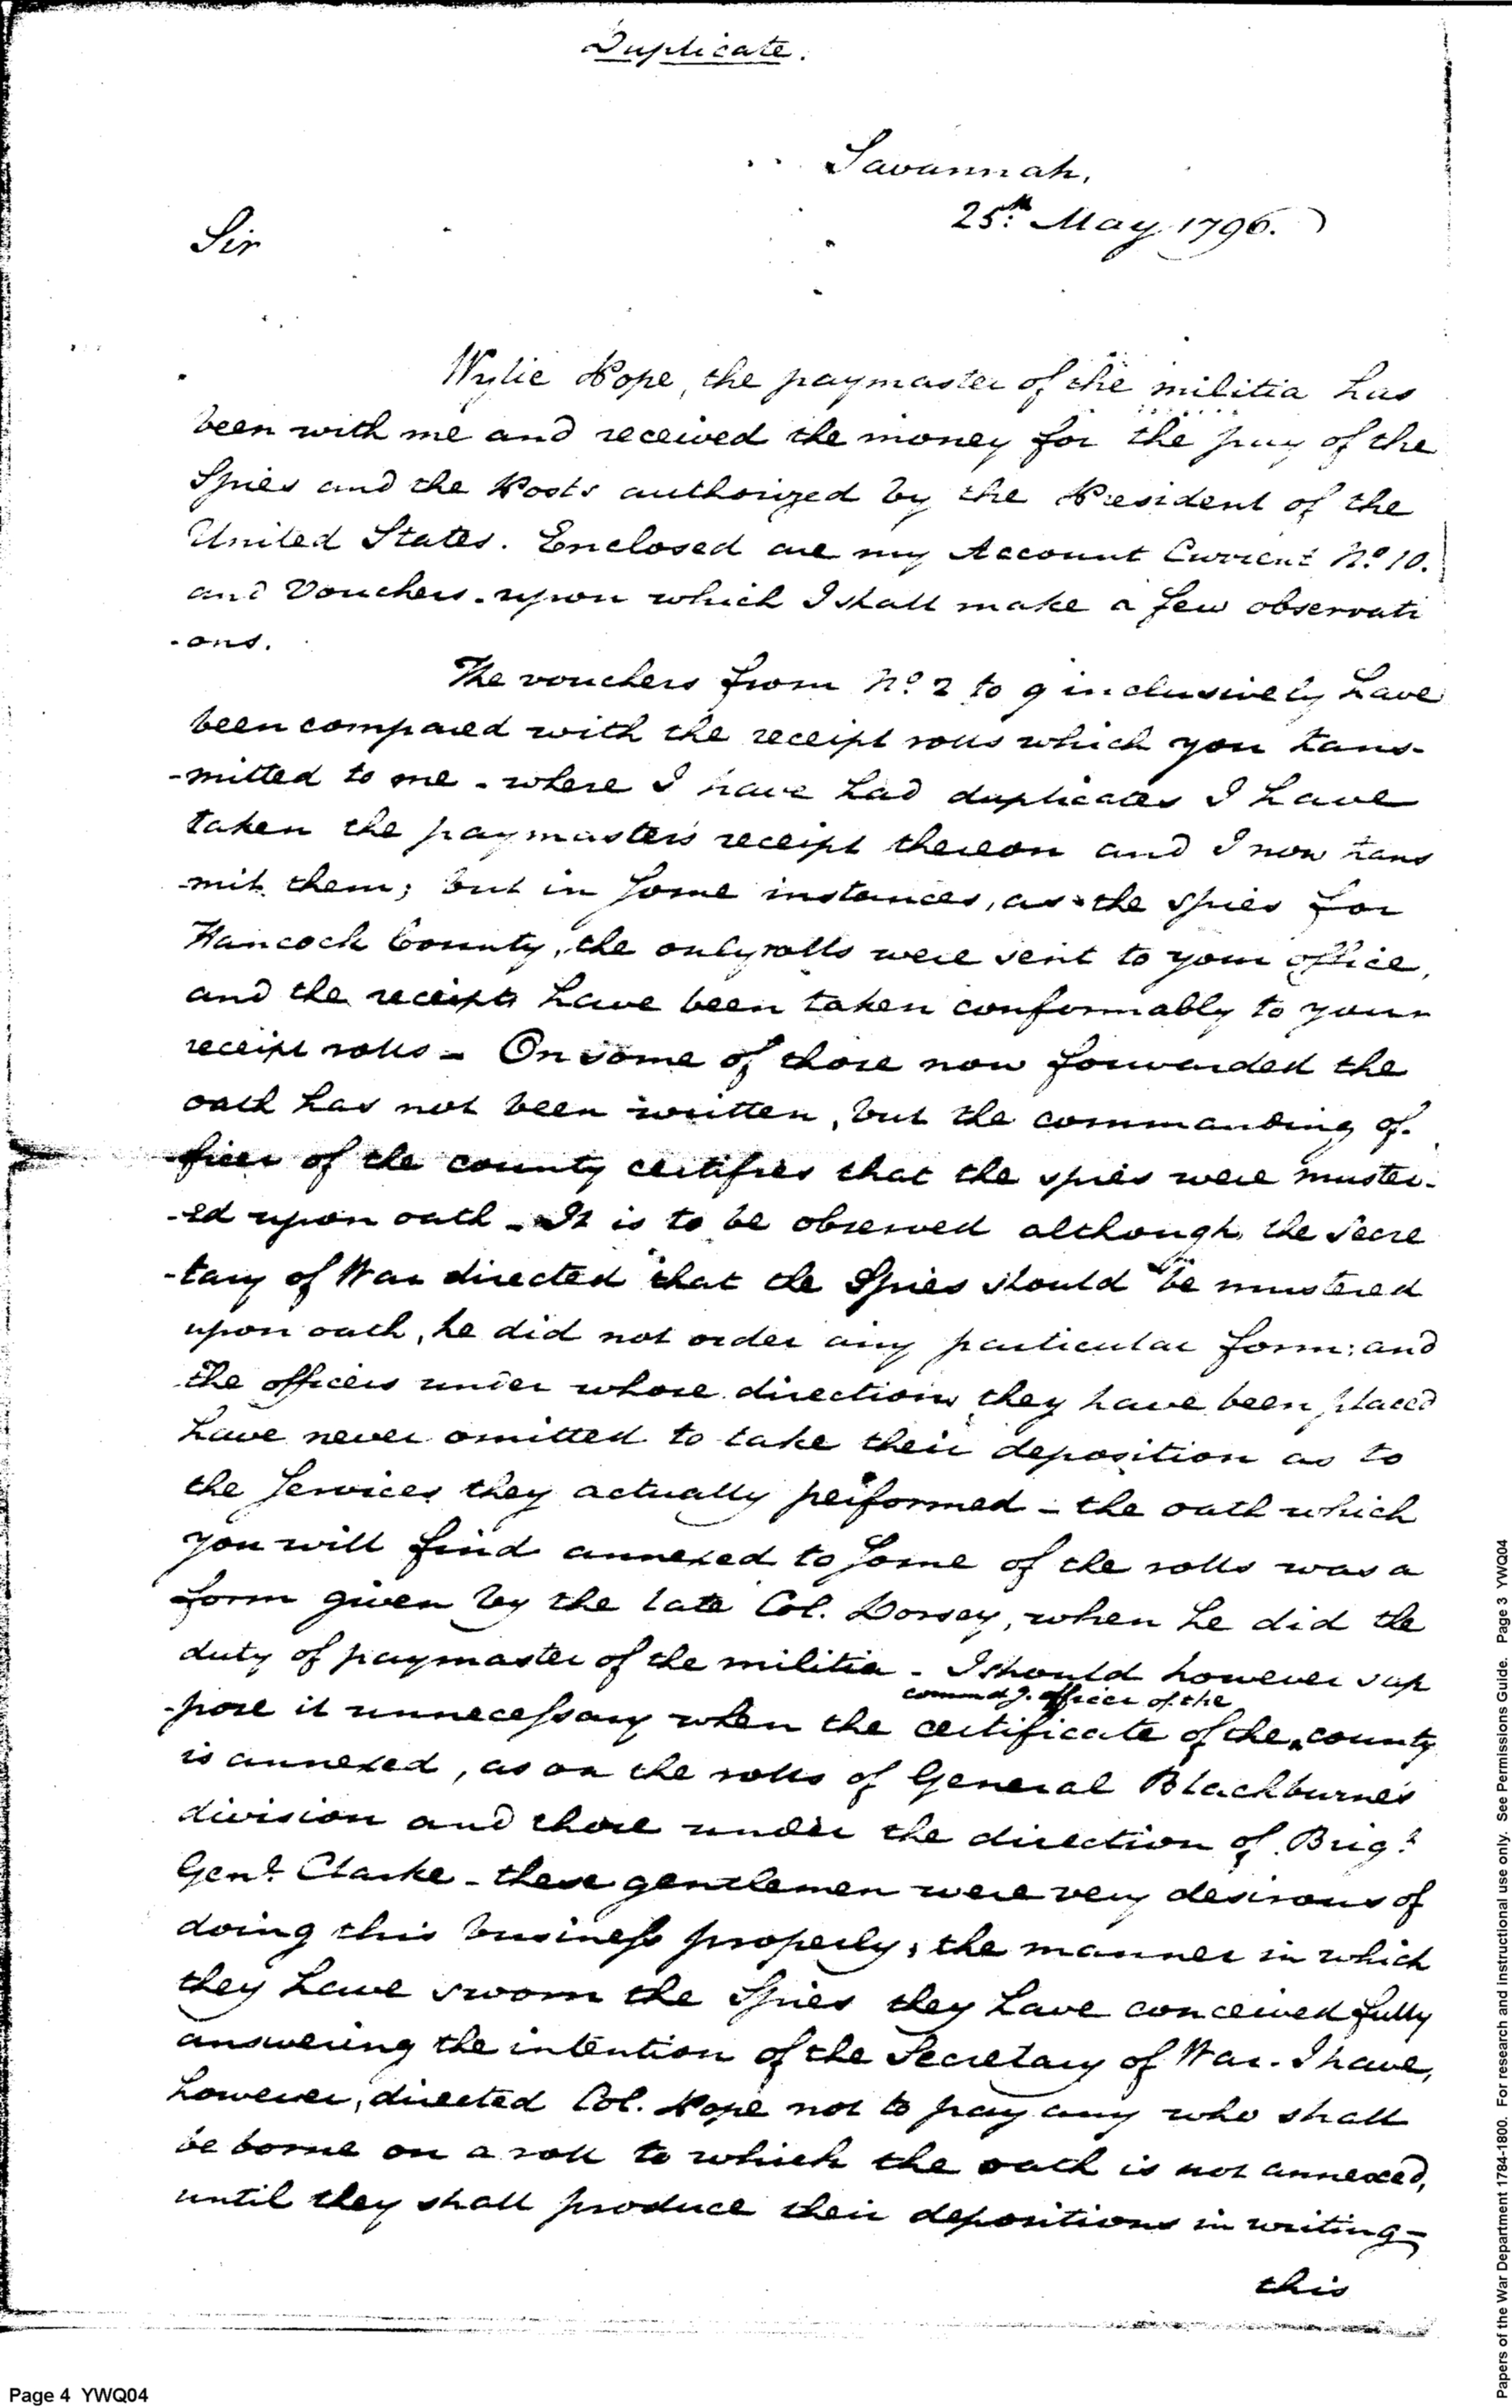 Duplicate.
Savannah,
25th. May 1796.)
Sir
Wylie Pope, the paymaster of the militia has
been with me and received the money for the pay of the
Spies and the Posts authorized by the President of the
United States. Enclosed are my Account Current No. 10.
and Vouchers. upon which I shall make a few observati
-ons.
The vouchers from No. 2 to 9 inclusively have
been compared with the receipt rolls which you trans-
-mitted to me - where I have had duplicates I have
taken the paymasters receipt thereon and I now trans
-mit them; but in some instances, as the spies for
Hancock County, the only rolls were sent to your office,
and the receipts have been taken conformably to your
receipt rolls - On some of those now forwarded the
oath has not been written, but the commanding of-
-ficer of the county certifies that the spies were muster-
-ed upon oath - It is to be observed although the Secre
-tary of War directed that the Spies should be mustered
upon oath, he did not order any particular form: and
the officers under whose direction they have been placed
have never omitted to take their deposition as to
the services they actually performed - the oath which
you will find annexed to some of the rolls was a
form given by the late Col. Dorsey, when he did the
duty of paymaster of the militia - I should however sup
commdg. officer of the
-pose it unnecessary when the certificate of the ‸ county
is annexed, as on the rolls of General Blackburne's
division and those under the direction of Brigr.
Genl. Clarke - these gentlemen were very desirous of
doing this business properly; the manner in which
they have sworn the Spies they have conceived fully
answering the intention of the Secretary of War. I have,
however, directed Col. Pope not to pay any who shall
be borne on a roll to which the oath is not annexed,
until they shall produce their depositions in writing -
this
Page 4 YWQ04
Papers of the War Department 1784-1800. For research and instructional use only. See Permissions Guide. Page 3 YWQ04